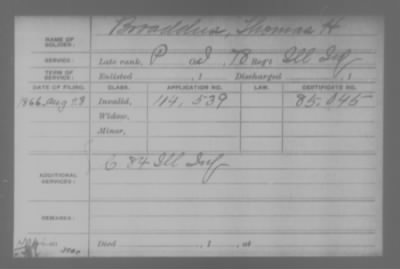 Broaddus, Thomas H
NAME OF SOLDIER:
SERVICE: Late rank, P Co. I, 78 Reg't Ill Inf
TERM OF SERVICE: Enlisted , 1 Discharged , 1
DATE OF FILING. CLASS. APPLICATION NO. LAW. CERTIFICATE NO.
1866, Aug 28 Invalid, 114,539 85,045
Widow,
Minor,
ADDITIONAL SERVICES: C 84 Ill Inf
REMARKS:
Died , 1 , at